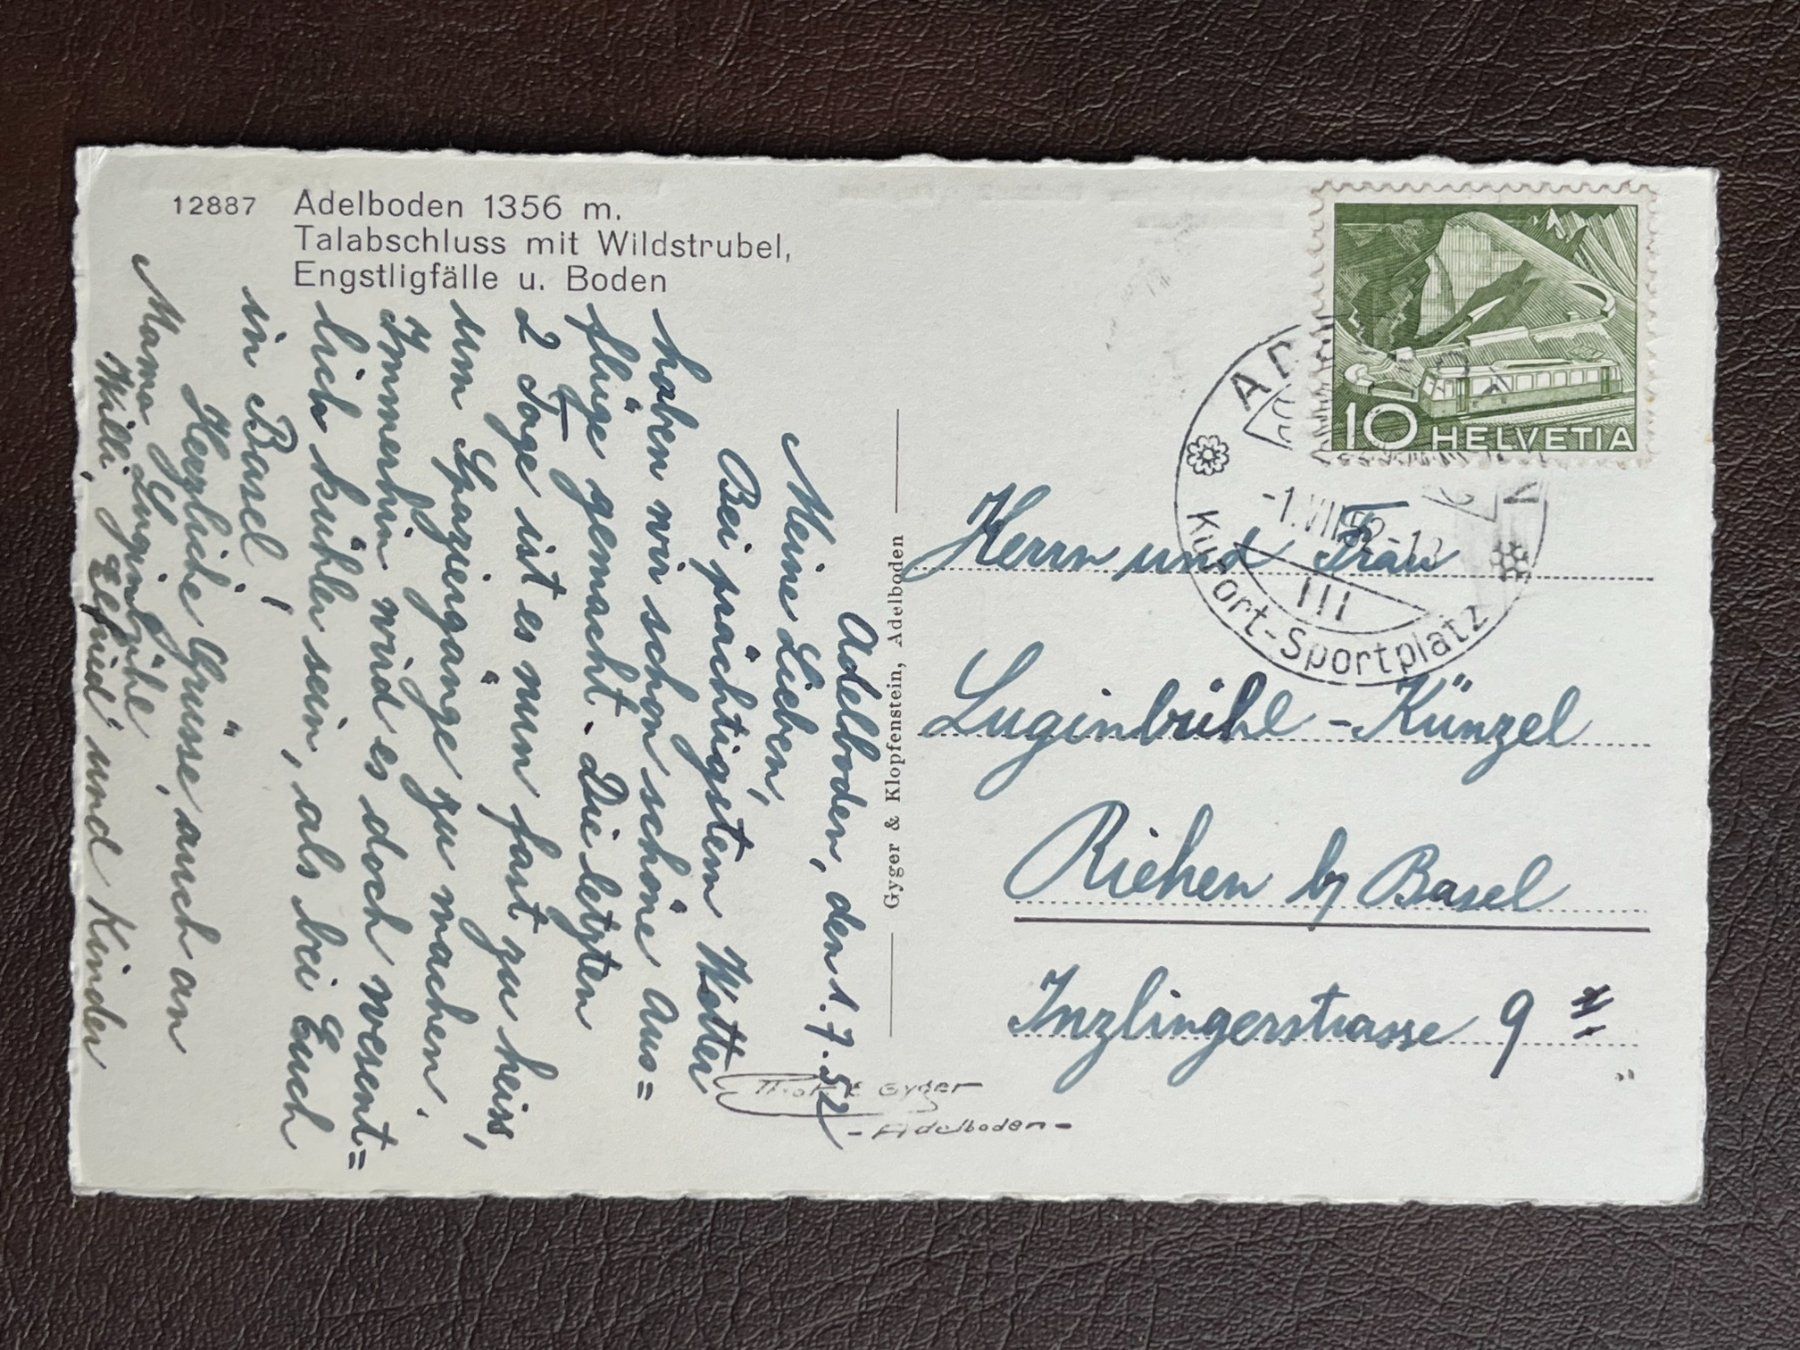 12887 Adelboden 1356 m.
Talabschluss mit Wildstrubel,
Engstligfälle u. Boden
Adelboden, den 1. 7. 52
Meine Lieben,
Bei prächtigstem Wetter
haben wir schon schöne Aus=
flüge gemacht. Die letzten
2 Tage ist es nun fast zu heiss,
um Spaziergänge zu machen.
Immerhin wird es doch wesent=
lich kühler sein, als bei Euch
in Basel!
Herzliche Grüsse, auch an
Mama Luginbühl,
Willi, und Kinder
Gyger & Klopfenstein, Adelboden
Gyger
-Adelboden-
10 HELVETIA
-1.VII.52-
III
Kurort-Sportplatz
Herrn und Frau
Luginbühl-Künzel
Riehen by Basel
Inzlingerstrasse 9